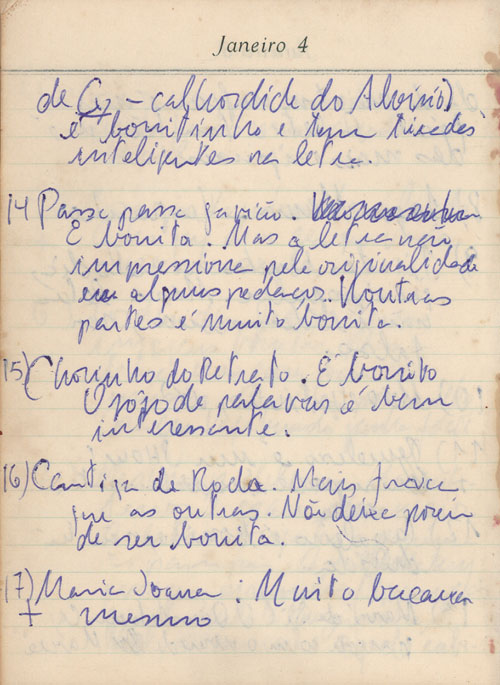 Janeiro 4
de Cr2 - calhordide do Aloisio)
é bonitinho e tem tiradas
inteligentes na letra.
14 Passa passa gavião.
É bonita. Mas a letra não
impressiona pela originalidade
em alguns pedaços. Noutras
partes é muito bonita.
15) Chorinho do Retrato. É bonito
O jogo de palavras é bem
interessante.
16) Cantiga de Roda. Mais fraca
que as outras. Não deixa porém
de ser bonita.
17) Maria Joana: Muito bacana
+ mesmo